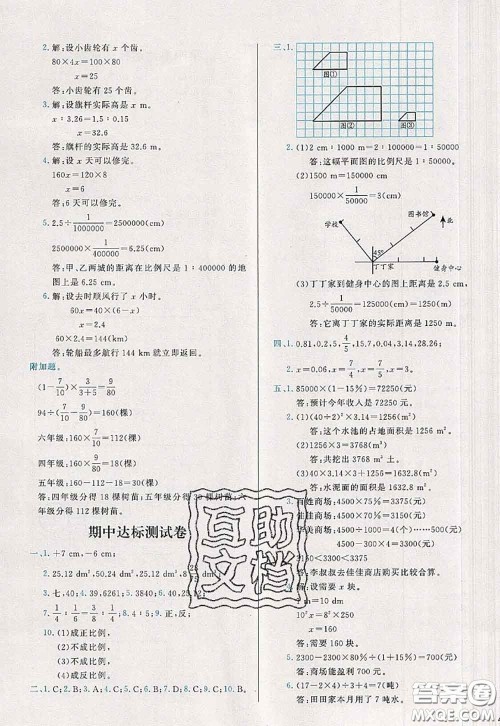 2.解:设小齿轮有 x 个齿。
80×4x=100×80
x=25
答:小齿轮有 25 个齿。
3.解:设旗杆实际高是 x m。
x∶3.26=1.5∶0.15
x=32.6
答:旗杆的实际高是 32.6 m。
4.解:设 x 天可以修完。
160x=120×8
x=6
答:6 天可以修完。
5.2.5÷1/1000000=2500000(cm)
2500000×1/400000=6.25(cm)
答:甲、乙两城的距离在比例尺是 1∶400000 的地
图上是 6.25 cm。
6.解:设去时顺风行了 x 小时。
60x=40×(6-x)
x=2.4
60×2.4=144(km)
答:轮船最多航行 144 km 就立即返回。
附加题。
(1-7/10)×3/(3+5)=9/80
94÷(7/10-9/80)=160(棵)
六年级:160×7/10=112(棵)
四年级:160×9/80=18(棵)
五年级:160-112-18=30(棵)
答:四年级分得 18 棵树苗;五年级分得 30 棵树苗;六
年级分得 112 棵树苗。
期中达标测试卷
一、1.+7 cm,-6 cm;
2.25.12 dm²,50.24 dm²,
3.七,40;4.39,6261;5.3840;6.25.12;
8.4;9.反,正;
10.(1)成正比例,
(2)不成比例,
(3)不成比例,
(4)成反比例。
二、1.C;2.B;3.A;4.C;5.C;6.C;7.C;8.B;9.C;10.B。
三、1.
图①
图②
图③
2.(1)2 cm∶1000 m=2∶100000=1∶50000
答:这幅平面图的比例尺是 1∶50000。
(2)1500 m=150000(cm)
150000×1/50000=3(cm)
学校
图书馆
北
45°
丁丁家
健身中心
(3)丁丁家到健身中心的图上距离是 2.5 cm,
2.5÷1/50000=125000(cm)=1250(m)
答:它离丁丁家的实际距离是 1250 m。
五、1.85000×(1-15%)=72250(元)
答:预计今年收入是 72250 元。
2.(1)(40÷2)²×3.14=1256(m²)
答:这个水池的占地面积是 1256 m²。
(2)1256×3=3768(m³)
答:共挖出 3768 m³ 土。
(3)1256+3.14×40×3=1632.8(m²)
答:水泥面的面积是 1632.8 m²。
3.百姓商场:4500×75%=3375(元)
华美商场:4500-4500÷500×60=3960(元)
3150<3375<3960
答:李叔叔去佳佳商店购买比较合算。
4.解:设需要 x 块。
1 m=10 dm
10²x=8²×250
x=160
答:需要 160 块。
5.2300-2300×80%÷(1+15%)=700(元)
答:商场能盈利 700 元。
6.(17-2×4)÷3+4=7(吨)
答:田田家本月用了 7 吨水。
互助文档
答案圈
MXQE.COM